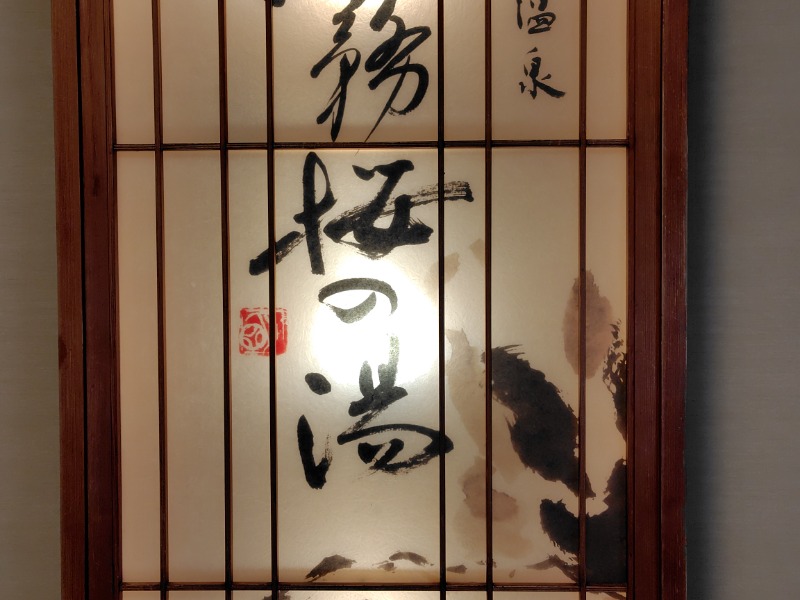 温泉
務桜の湯